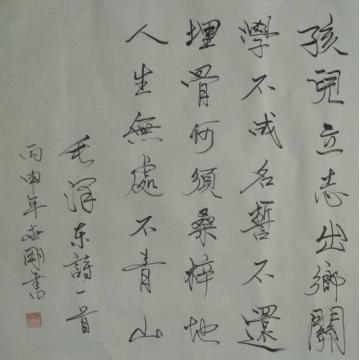 孩兒立志出鄉關
學不成名誓不還
埋骨何須桑梓地
人生無處不青山
毛澤东詩一首
丙申年志剛書